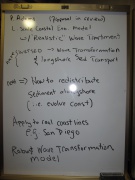 P. Adams (Proposal in review)
1. Couple Coastal Evo. model
w/ "Realistic" Wave Treatment
→ Wave Transformation
& Longshore Sed. Transport
=> How to redistribute
Sediment alongshore
(i.e. evolve coast)
Applying to real coastlines
e.g. San Diego
Robust Wave Transformation
model